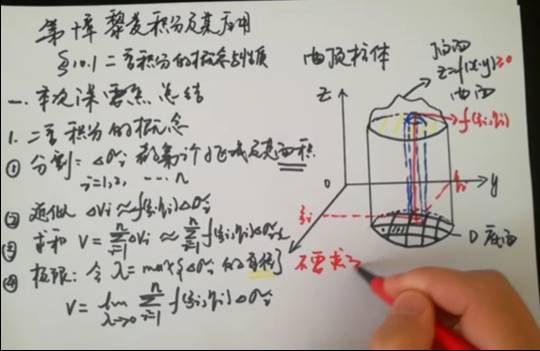 第十章 黎曼积分及其应用
§10.1 二重积分的概念与性质
一. 本次课要点总结
1. 二重积分的概念
① 分割: Δσi 既第i个小区域及其面积
i=1,2, ... n
② 近似 ΔVi ≈ f(ξi,ηi)Δσi
③ 求和 V = Σ_{i=1}^{n} ΔVi ≈ Σ_{i=1}^{n} f(ξi,ηi)Δσi
④ 极限: 令 λ = max{Δσi 的直径}
V = lim_{λ→0} Σ_{i=1}^{n} f(ξi,ηi)Δσi
曲顶柱体
顶面
z=f(x,y)≥0
曲面
z
f(ξi,ηi)
0
ηi
y
ξi
D 底面
不要求